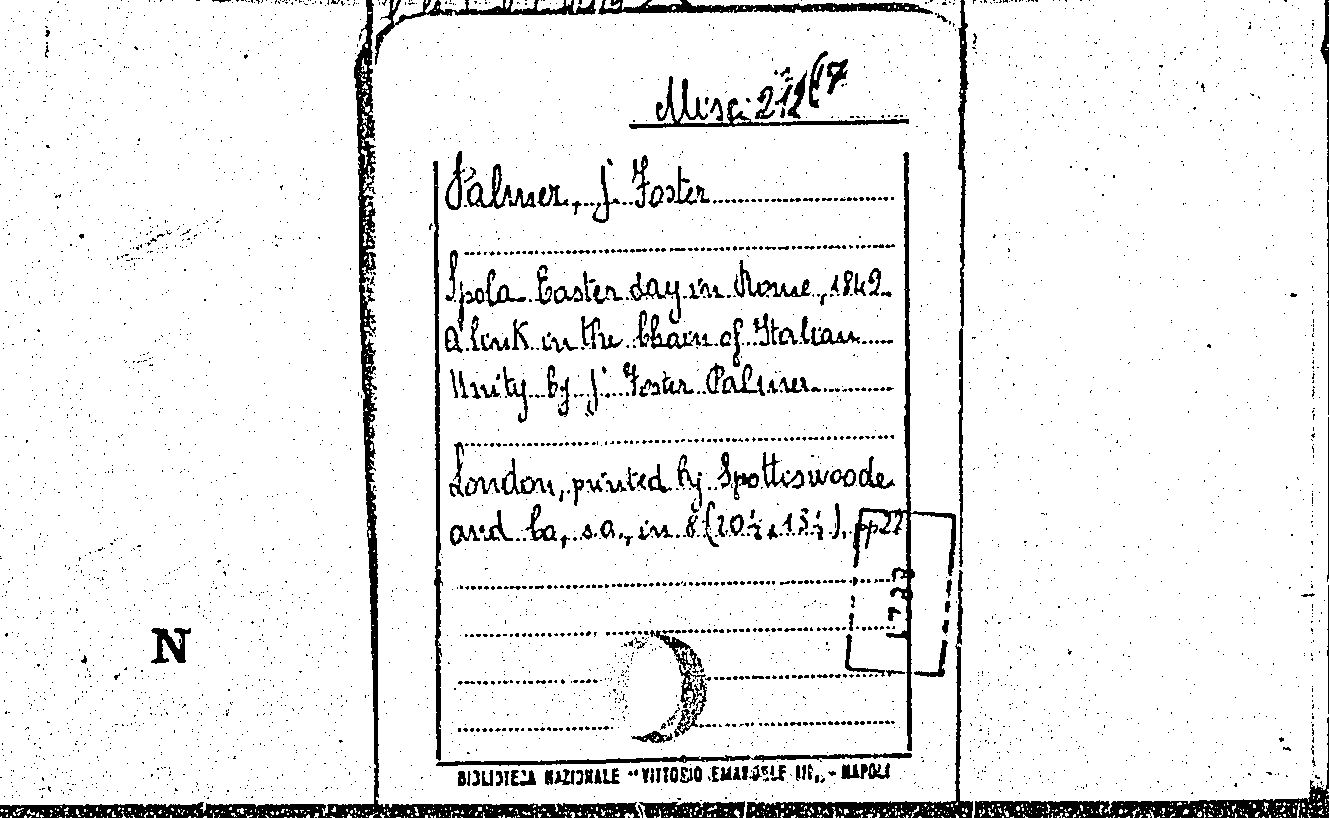 Misc. 212(7
Palmer, J. Foster
Spola Easter day in Rome, 1849.
A link in the Chain of Italian
Unity by J. Foster Palmer
London, printed by Spottiswoode
and Co, s.a., in 8 (20½ x 13½), pp 27
N
BIBLIOTECA NAZIONALE "VITTORIO EMANUELE III" - NAPOLI